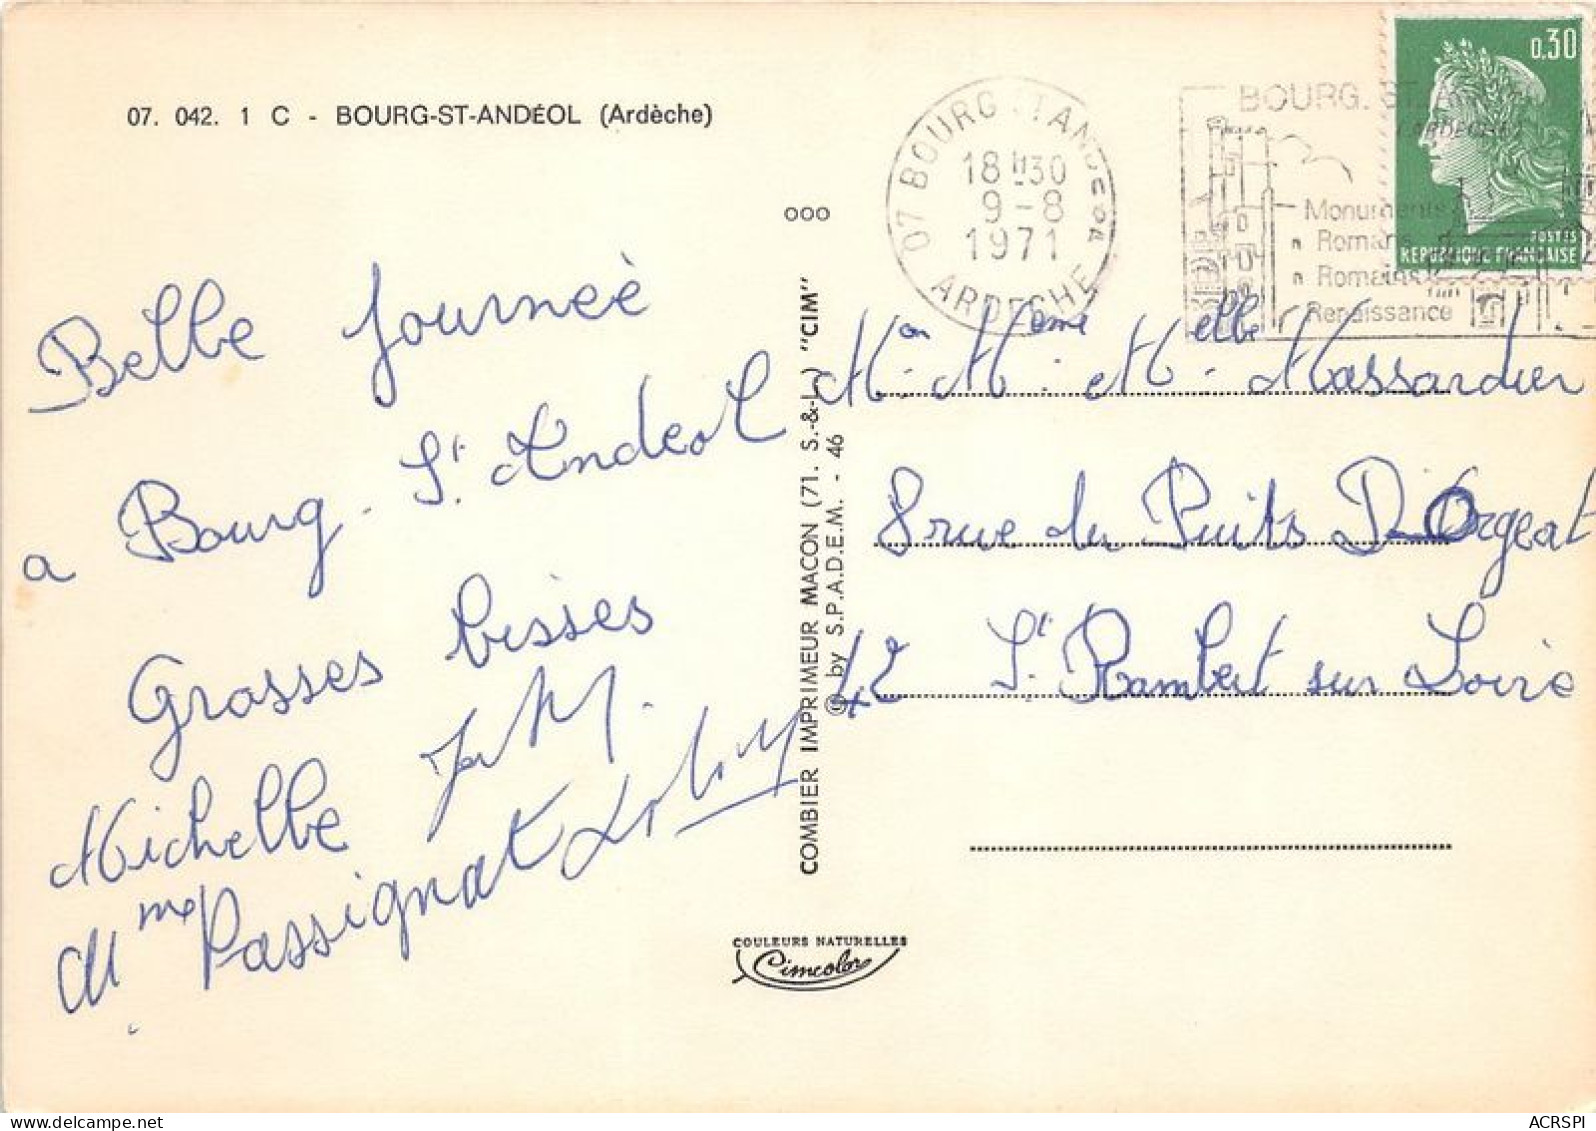 07. 042. 1 C - BOURG-ST-ANDÉOL (Ardèche)
ooo
07 BOURG ST ANDEOL
18H30
9-8
1971
ARDECHE
BOURG. ST.
ARDECHE
Monuments
Romans
Romains
Renaissance
0,30
POSTES
REPUBLIQUE FRANÇAISE
Belle journeè
a Bourg. St. Andeol
Grosses bisses
Michelle
Mme Passignat
COMBIER IMPRIMEUR MACON (71. S.-&-L.) "CIM"
© by S.P.A.D.E.M. - 46
Mon. Meme. Melle. Massardier
8 rue du Puits D'Orgeat
42 St Rambert sur Loire
COULEURS NATURELLES
Cimcolor
ACRSPI